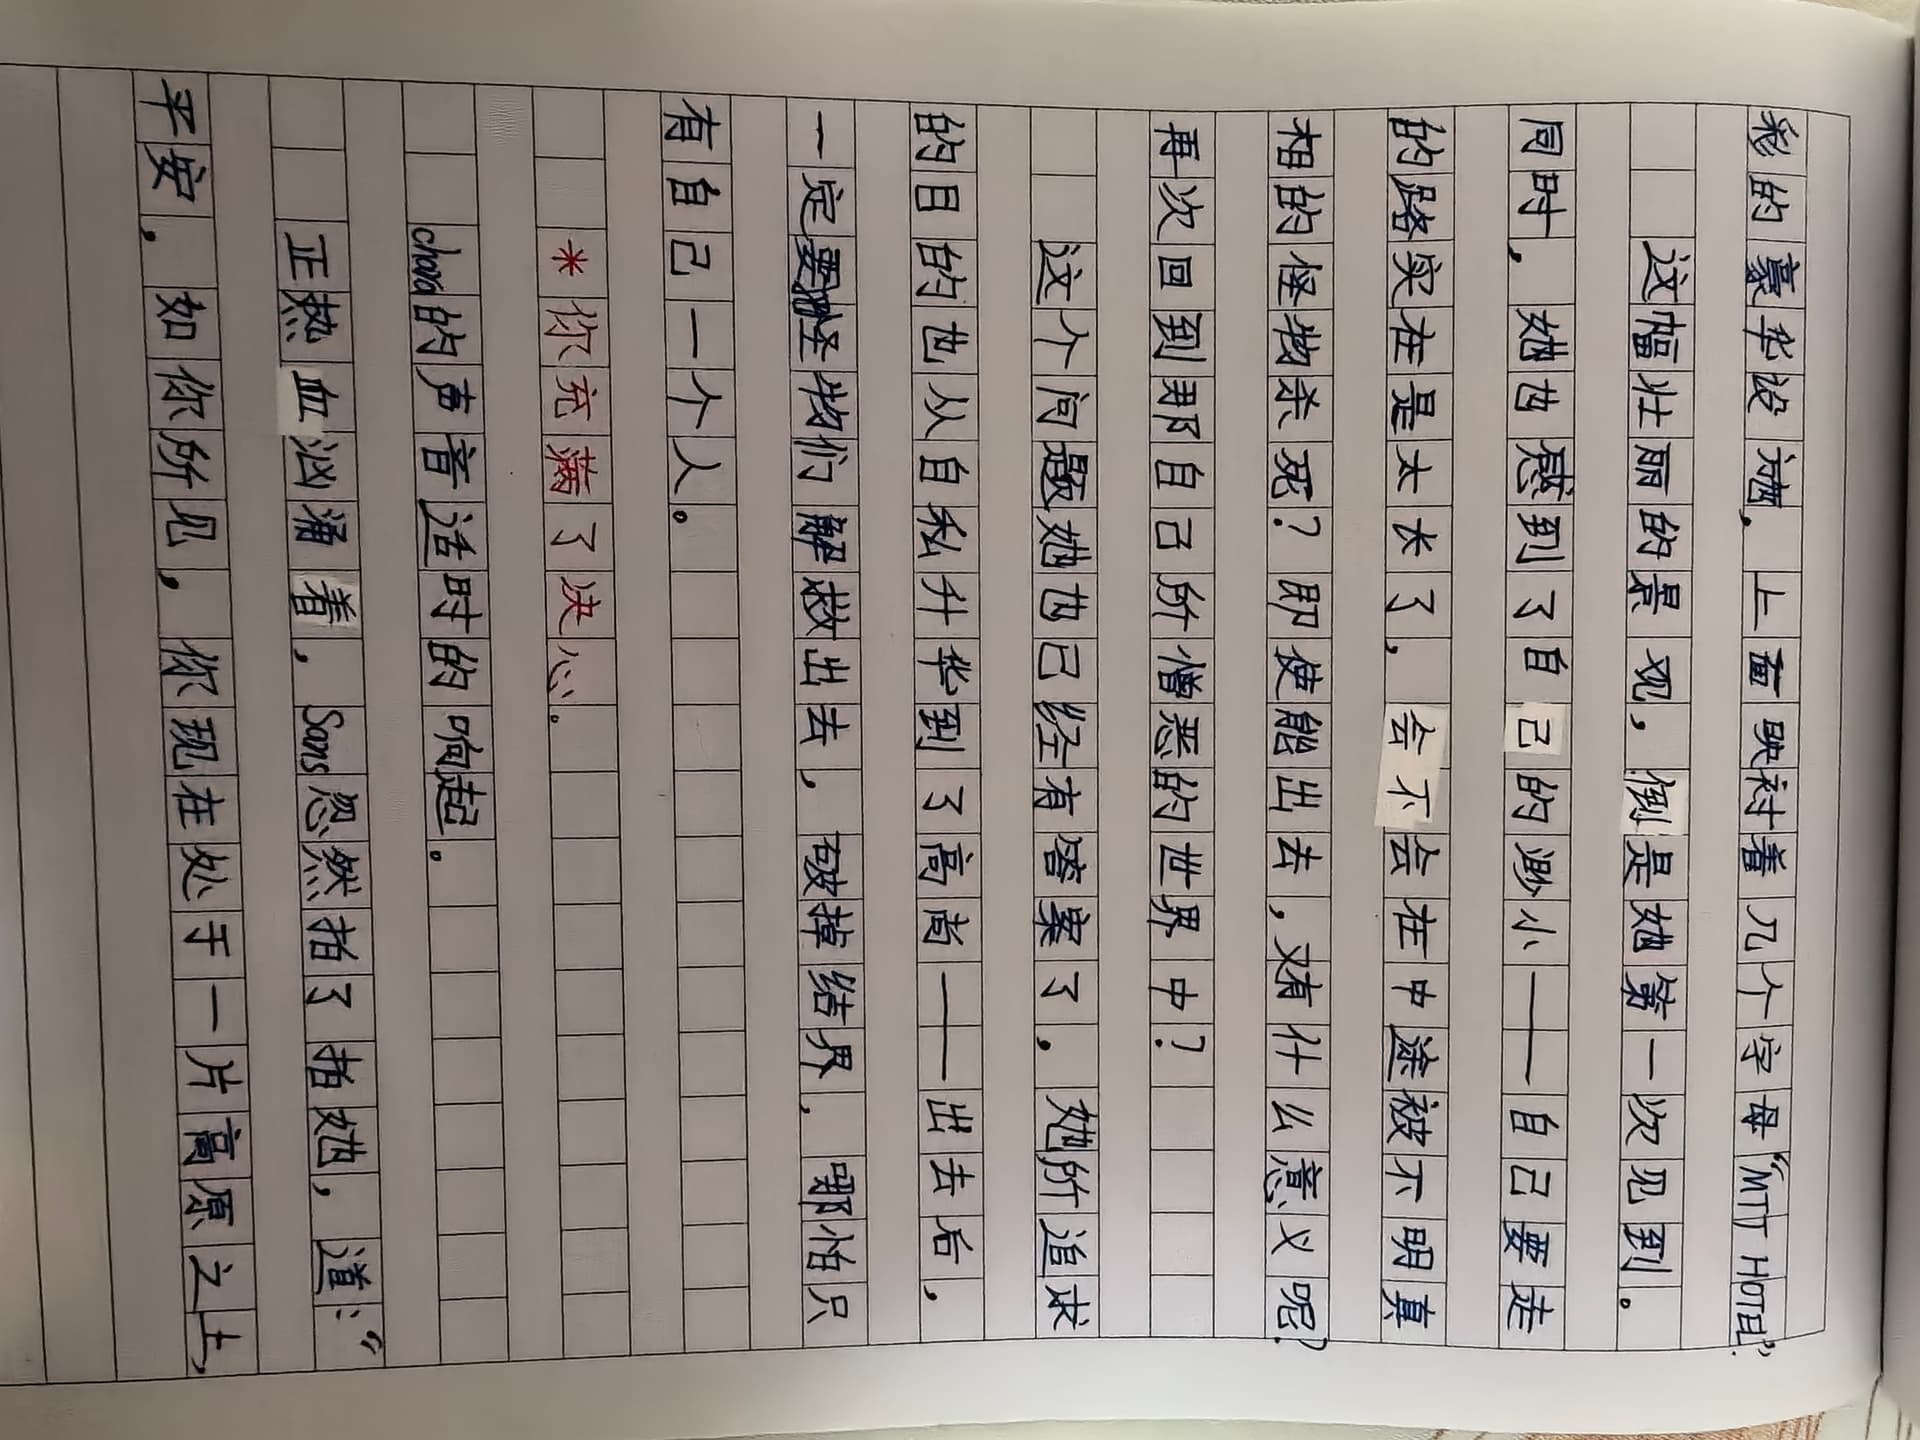 彩的豪华设施，上面映衬着几个字母“MTT HOTEL”.
这幅壮丽的景观，倒是她第一次见到。
同时，她也感到了自己的渺小——自己要走
的路实在是太长了，会不会在中途被不明真
相的怪物杀死？即使能出去，又有什么意义呢？
再次回到那自己所憎恶的世界中？
这个问题她也已经有答案了，她所追求
的目的也从自私升华到了高尚——出去后，
一定要怪物们解救出去，破掉结界，哪怕只
有自己一个人。
*你充满了决心。
chara的声音适时的响起。
正热血汹涌着，Sans忽然拍了拍她，道：“
平安，如你所见，你现在处于一片高原之上，